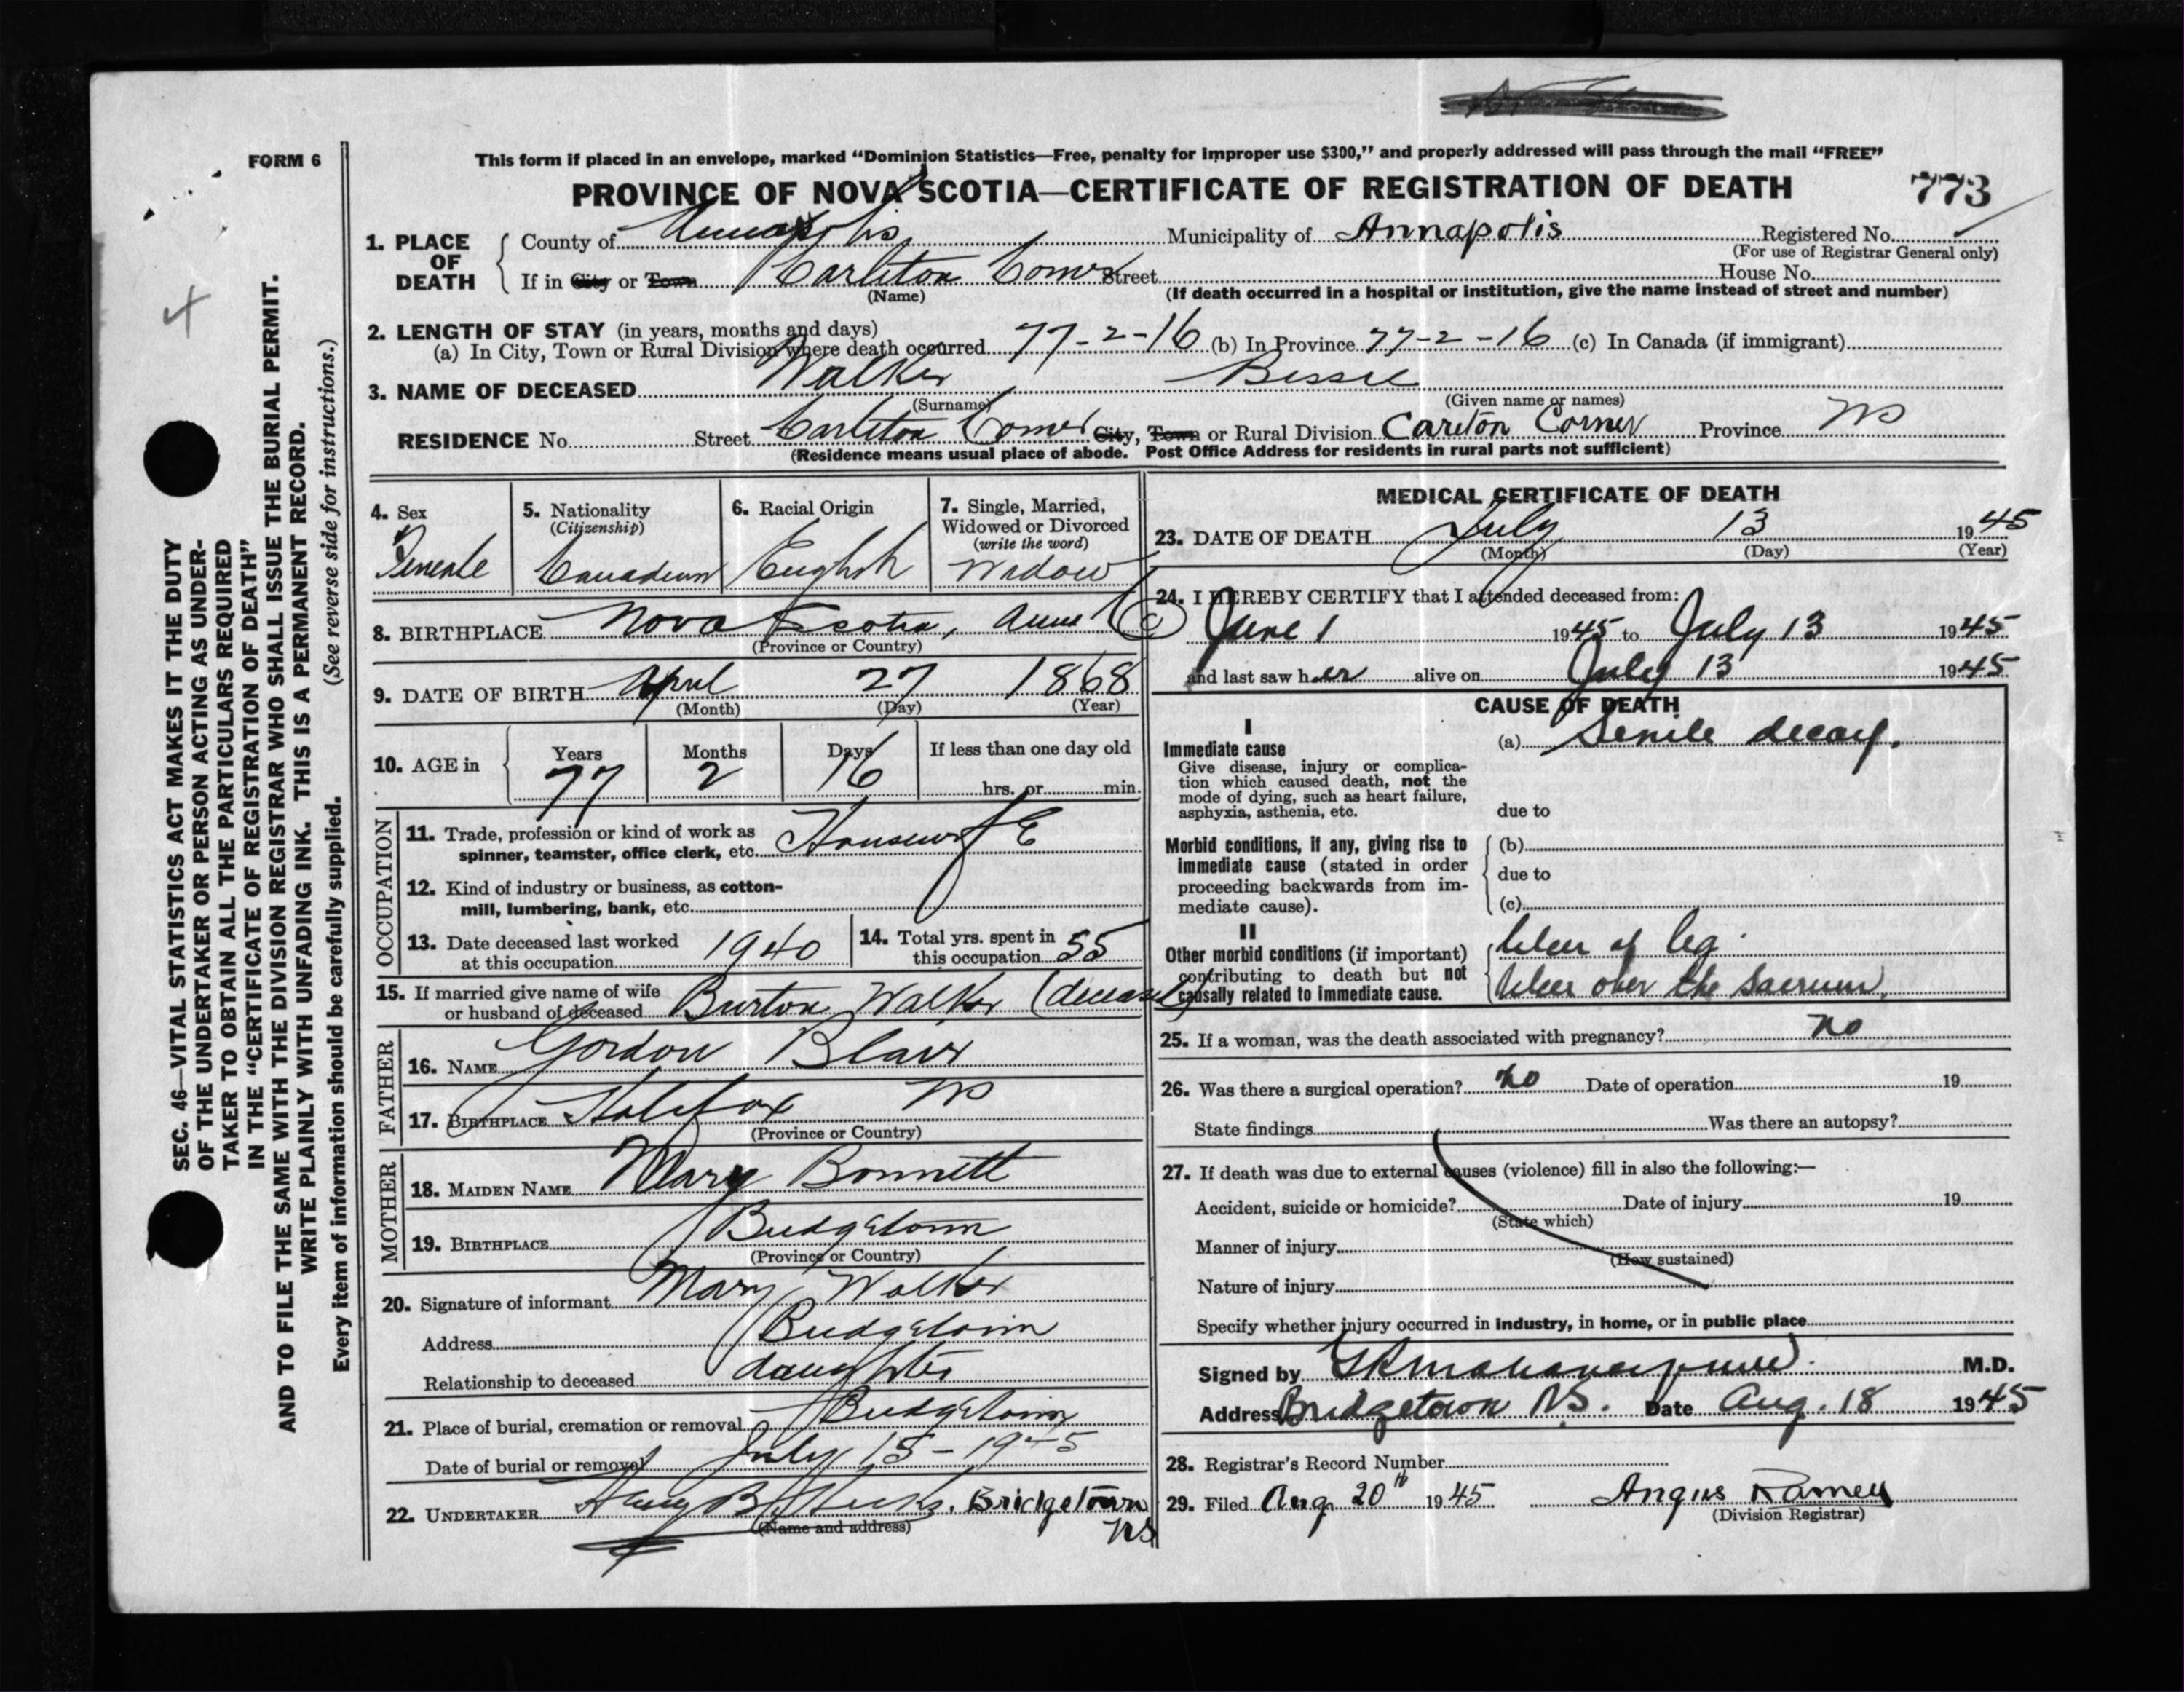 FORM 6
This form if placed in an envelope, marked "Dominion Statistics—Free, penalty for improper use $300," and properly addressed will pass through the mail "FREE"
PROVINCE OF NOVA SCOTIA—CERTIFICATE OF REGISTRATION OF DEATH 773
1. PLACE OF DEATH County of Annapolis Municipality of Annapolis Registered No.
(For use of Registrar General only)
If in City or Town Carleton Corner Street House No.
(Name) (If death occurred in a hospital or institution, give the name instead of street and number)
2. LENGTH OF STAY (in years, months and days)
(a) In City, Town or Rural Division where death occurred 77-2-16 (b) In Province 77-2-16 (c) In Canada (if immigrant)
3. NAME OF DECEASED Walker Bessie
(Surname) (Given name or names)
RESIDENCE No. Street Carleton Corner City, Town or Rural Division Carlton Corner Province NS
(Residence means usual place of abode. Post Office Address for residents in rural parts not sufficient)
4. Sex
Female
5. Nationality
(Citizenship)
Canadian
6. Racial Origin
English
7. Single, Married,
Widowed or Divorced
(write the word)
Widow
8. BIRTHPLACE Nova Scotia, Anna Co
(Province or Country)
9. DATE OF BIRTH April 27 1868
(Month) (Day) (Year)
10. AGE in Years Months Days If less than one day old
77 2 16 hrs. or min.
OCCUPATION
11. Trade, profession or kind of work as
spinner, teamster, office clerk, etc. Housewife
12. Kind of industry or business, as cotton-
mill, lumbering, bank, etc.
13. Date deceased last worked
at this occupation 1940
14. Total yrs. spent in
this occupation 55
15. If married give name of wife
or husband of deceased Burton Walker (deceased)
FATHER
16. NAME Gordon Blair
17. BIRTHPLACE Halifax NS
(Province or Country)
MOTHER
18. MAIDEN NAME Mary Bonnett
19. BIRTHPLACE Bridgetown
(Province or Country)
20. Signature of informant Mary Walker
Address Bridgetown
Relationship to deceased daughter
21. Place of burial, cremation or removal Bridgetown
Date of burial or removal July 15-1945
22. UNDERTAKER Harry B Hicks. Bridgetown
(Name and address) NS
MEDICAL CERTIFICATE OF DEATH
23. DATE OF DEATH July 13 1945
(Month) (Day) (Year)
24. I HEREBY CERTIFY that I attended deceased from:
June 1 1945 to July 13 1945
and last saw her alive on July 13 1945
CAUSE OF DEATH
I
Immediate cause
Give disease, injury or complica-
tion which caused death, not the
mode of dying, such as heart failure,
asphyxia, asthenia, etc.
(a) Senile decay.
due to
Morbid conditions, if any, giving rise to
immediate cause (stated in order
proceeding backwards from im-
mediate cause).
(b)
due to
(c)
II
Other morbid conditions (if important)
contributing to death but not
causally related to immediate cause.
Ulcer of leg.
Ulcer over the sacrum.
25. If a woman, was the death associated with pregnancy? no
26. Was there a surgical operation? no Date of operation 19
State findings Was there an autopsy?
27. If death was due to external causes (violence) fill in also the following:—
Accident, suicide or homicide? Date of injury 19
(State which)
Manner of injury
(How sustained)
Nature of injury
Specify whether injury occurred in industry, in home, or in public place
Signed by M.D.
Address Bridgetown NS. Date Aug. 18 1945
28. Registrar's Record Number
29. Filed Aug 20th 1945 Angus Ramey
(Division Registrar)
4
SEC. 46—VITAL STATISTICS ACT MAKES IT THE DUTY
OF THE UNDERTAKER OR PERSON ACTING AS UNDER-
TAKER TO OBTAIN ALL THE PARTICULARS REQUIRED
IN THE "CERTIFICATE OF REGISTRATION OF DEATH"
AND TO FILE THE SAME WITH THE DIVISION REGISTRAR WHO SHALL ISSUE THE BURIAL PERMIT.
WRITE PLAINLY WITH UNFADING INK. THIS IS A PERMANENT RECORD.
Every item of information should be carefully supplied. (See reverse side for instructions.)